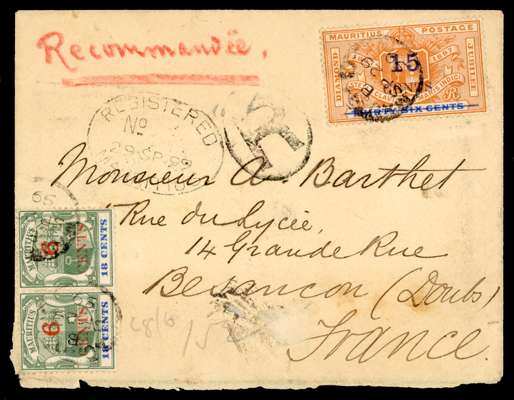 Recommandée.
MAURITIUS POSTAGE
DIAMOND JUBILEE
1897
15
CENTS
THIRTY SIX CENTS
REGISTERED
No
29 SP 99
R
Monsieur A. Barthet
Rue du Lycée,
14 Grande Rue
Besancon (Doubs)
France.
MAURITIUS
6
CENTS
18 CENTS
MAURITIUS
6
CENTS
18 CENTS